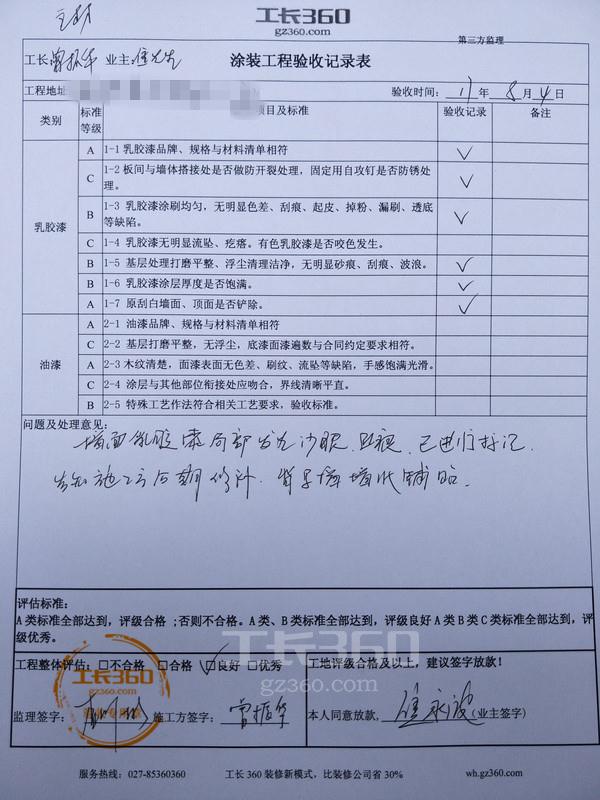 工长360
gz360.com
第三方监理
工长 曾振华 业主:
涂装工程验收记录表
工程地址 验收时间: 17 年 8 月 4 日
类别 标准等级 项目及标准 验收记录 备注
乳胶漆
A 1-1 乳胶漆品牌、规格与材料清单相符 ✓
C 1-2 板间与墙体搭接处是否做防开裂处理，固定用自攻钉是否防锈处
理。 ✓
B 1-3 乳胶漆涂刷均匀，无明显色差、刮痕、起皮、掉粉、漏刷、透底
等缺陷。 ✓
C 1-4 乳胶漆无明显流坠、疙瘩。有色乳胶漆是否咬色发生。
B 1-5 基层处理打磨平整、浮尘清理洁净，无明显砂痕、刮痕、波浪。 ✓
B 1-6 乳胶漆涂层厚度是否饱满。 ✓
A 1-7 原刮白墙面、顶面是否铲除。 ✓
油漆
A 2-1 油漆品牌、规格与材料清单相符
C 2-2 基层打磨平整，无浮尘，底漆面漆遍数与合同约定要求相符。
A 2-3 木纹清楚，面漆表面无色差、刷纹、流坠等缺陷，手感饱满光滑。
C 2-4 涂层与其他部位衔接处应吻合，界线清晰平直。
B 2-5 特殊工艺作法符合相关工艺要求，验收标准。
问题及处理意见:
墙面乳胶漆局部有沙眼 已进行标记
施工方后期修补 背景墙墙纸铺贴。
评估标准:
A 类标准全部达到，评级合格 ;否则不合格。A 类、B 类标准全部达到，评级良好 A 类 B 类 C 类标准全部达到，评
级优秀。
工程整体评估: □不合格 □合格 ☑良好 □优秀
工地评级合格及以上，建议签字放款！
监理签字: 施工方签字: 曾振华
本人同意放款, (业主签字)
工长360
gz360.com
工长360
gz360.com
服务热线: 027-85360360 工长 360 装修新模式，比装修公司省 30% wh.gz360.com